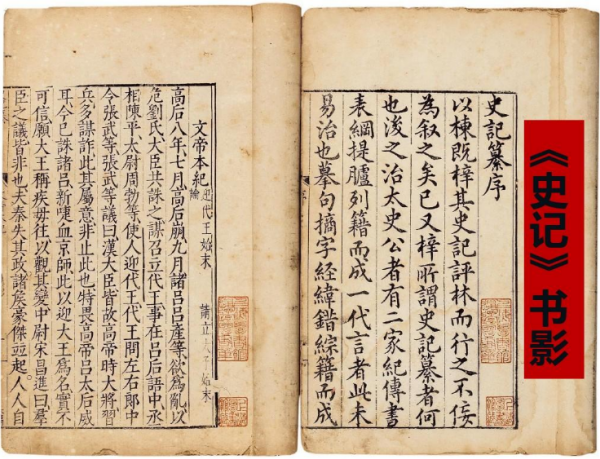 《史记》书影
史記纂序
以棟既梓其史記評林而行之不佞
為叙之矣已又梓所謂史記纂者何
也後之治太史公者有二家紀傳書
表綱提臚列籍而成一代言者此未
易治也摹句摘字經緯錯綜籍而成
文帝本紀
迎代王始末
高后八年七月高后崩九月諸呂呂產等欲為亂以
危劉氏大臣共誅之謀召立代王事在呂后語中丞
相陳平太尉周勃等使人迎代王代王問左右郎中
令張武等張武等議曰漢大臣皆故高帝時大將習
兵多謀詐此其屬意非止此也特畏高帝呂太后威
耳今已誅諸呂新喋血京師此以迎大王為名實不
可信願大王稱疾毋往以觀其變中尉宋昌進曰羣
臣之議皆非也夫秦失其政諸矦豪傑竝起人人自